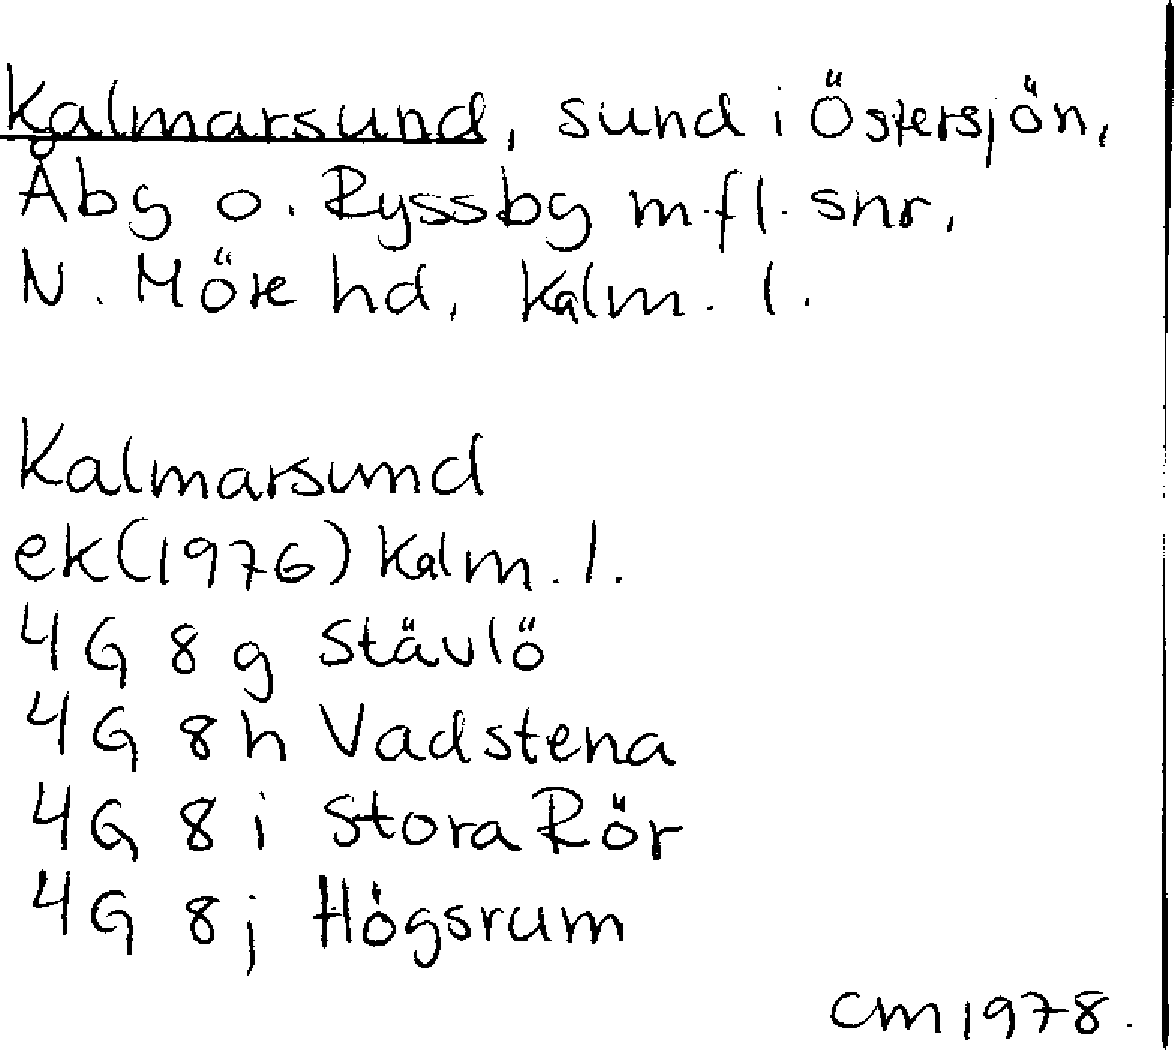 Kalmarsund, sund i Östersjön,
Åby o. Ryssby m.fl. snr,
N. Möre hd, Kalm. l.
Kalmarsund
ek(1976) Kalm. l.
4G 8g Stävlö
4G 8h Vadstena
4G 8i Stora Rör
4G 8j Högsrum
CM 1978.